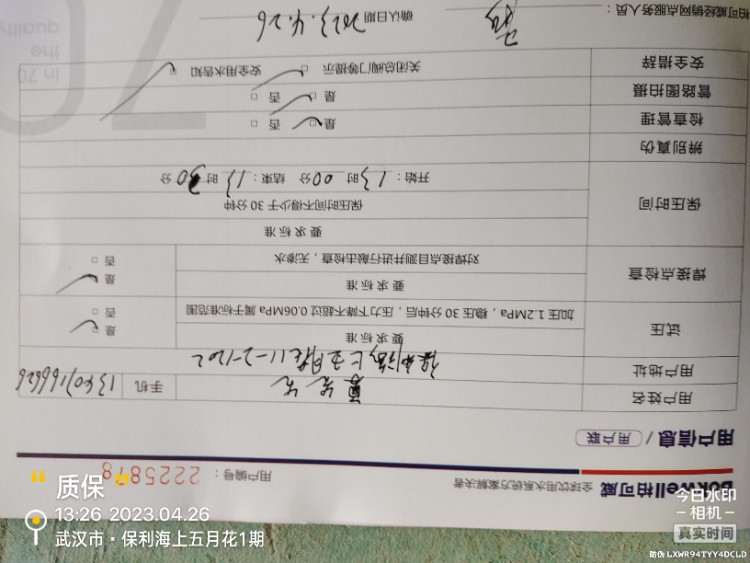 Borwell柏可威 全球饮用水系统方案解决者
用户编号： 2225878
用户信息 / 用户联
用户姓名 手机
用户地址
试压 要求标准 是
加压1.2MPa，稳压30分钟后，压力下降不超过0.06MPa属于标准范围 否
焊接点检查 要求标准 是
对焊接点目测并进行敲击检查，无渗水 否
保压时间 要求标准
保压时间不得少于30分钟
开始：13时00分 结束：13时30分
辨别真伪
检查管理 是 否
管路图拍摄 是 否
安全措辞 关闭总阀门等提示 安全用水告知
柏可威经销网点服务人员： 确认日期 2023.4.26
In 70
the
quality
质保
13:26 2023.04.26
武汉市·保利海上五月花1期
今日水印
相机
真实时间
防伪 LXWR94TYY4DCLD